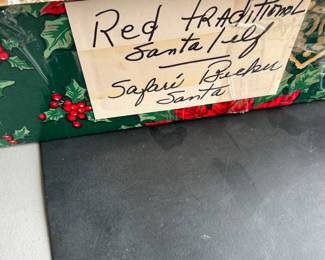 Red TRADITIONAL
Santa / elf
Safari
Santa